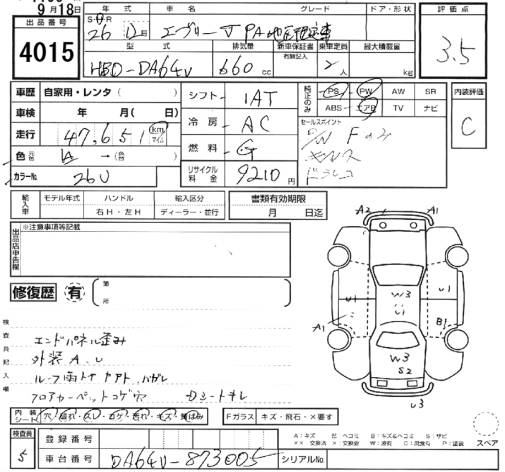 9月18日
出品番号
4015
年式 車名 グレード ドア・形状
26 エブリー PA
型式 排気量 新車保証書 乗車定員 最大積載量
HBD-DA64V 660 cc 有無記入 2 人 kg
評価点
3.5
車歴 自家用・レンタ ( )
車検 年 月 ( 日)
走行 47,651 km マイル
色 元色 白 → (色替)
カラーNo. 26U
シフト 1AT
冷房 AC
燃料 G
リサイクル料金 9210 円
純正のみ PS PW AW SR
ABS エアB TV ナビ
セールスポイント
P/W Fのみ
キーレス
ドラレコ
内装評価
C
輸入車 モデル年式 ハンドル 輸入区分
右H・左H ディーラー・並行
書類有効期限
月 日迄
出品店申告欄
※注意事項等記載
修復歴 有 箇所
検査員記入欄
エンドパネル歪み
外装A.U
ルーフ雨トイ ハガレ
フロアカーペットコゲ穴 Dシートキレ
A2 A1
U1 W3 U1 U1
A1 B1
W3
S2
U3
内装シート 穴・スレ・コゲ・汚れ・キズ
Fガラス キズ・飛石・×要す
スペア
検査員
5
登録番号
車台番号 DA64V-873005
シリアルNo.
A:キズ U:ヘコミ B:キズ&ヘコミ S:サビ
××:交換済 ×:要交換 W:波有 C:腐食 P:塗装